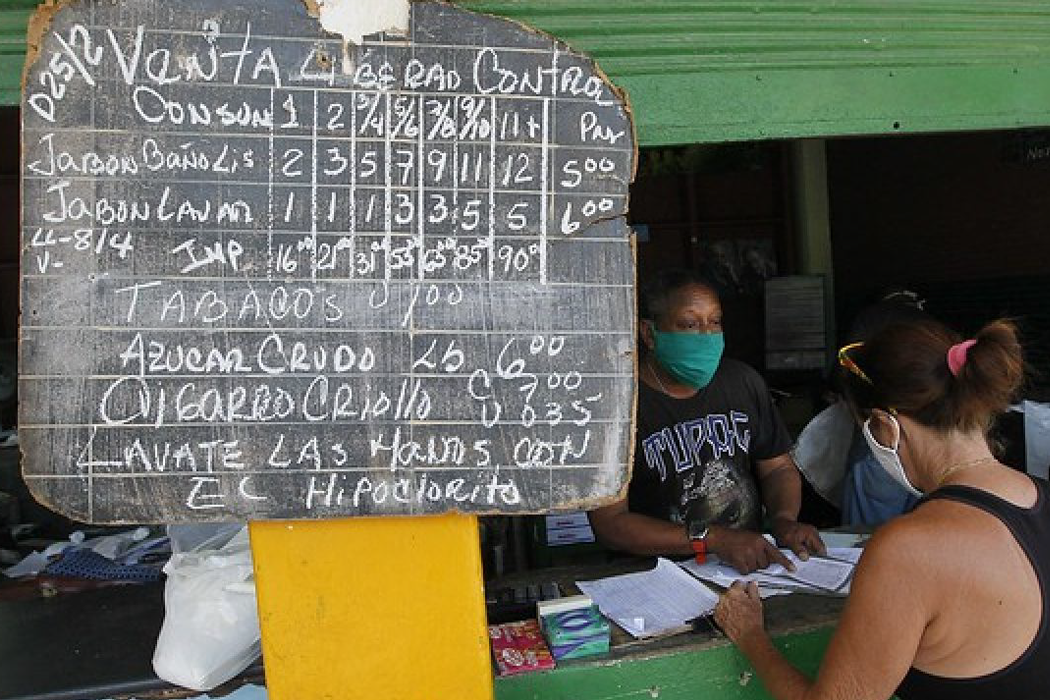 D25/2 Venta Liberad Control
Consum 1 2 3/4 5/6 7/8 9/10 11+ Par
Jabon Baño Lis 2 3 5 7 9 11 12 5⁰⁰
Jabon Lavar 1 1 1 3 3 5 5 6⁰⁰
4-8/4
V- Imp 16⁰⁰ 21⁰⁰ 31⁰⁰ 53⁰⁰ 63⁰⁰ 85⁰⁰ 90⁰⁰
Tabacos U 1⁰⁰
Azucar Crudo Lb 6⁰⁰
Cigarro Criollo C 7⁰⁰
U 035
Lavate las Manos con
El Hipoclorito
TUPAC